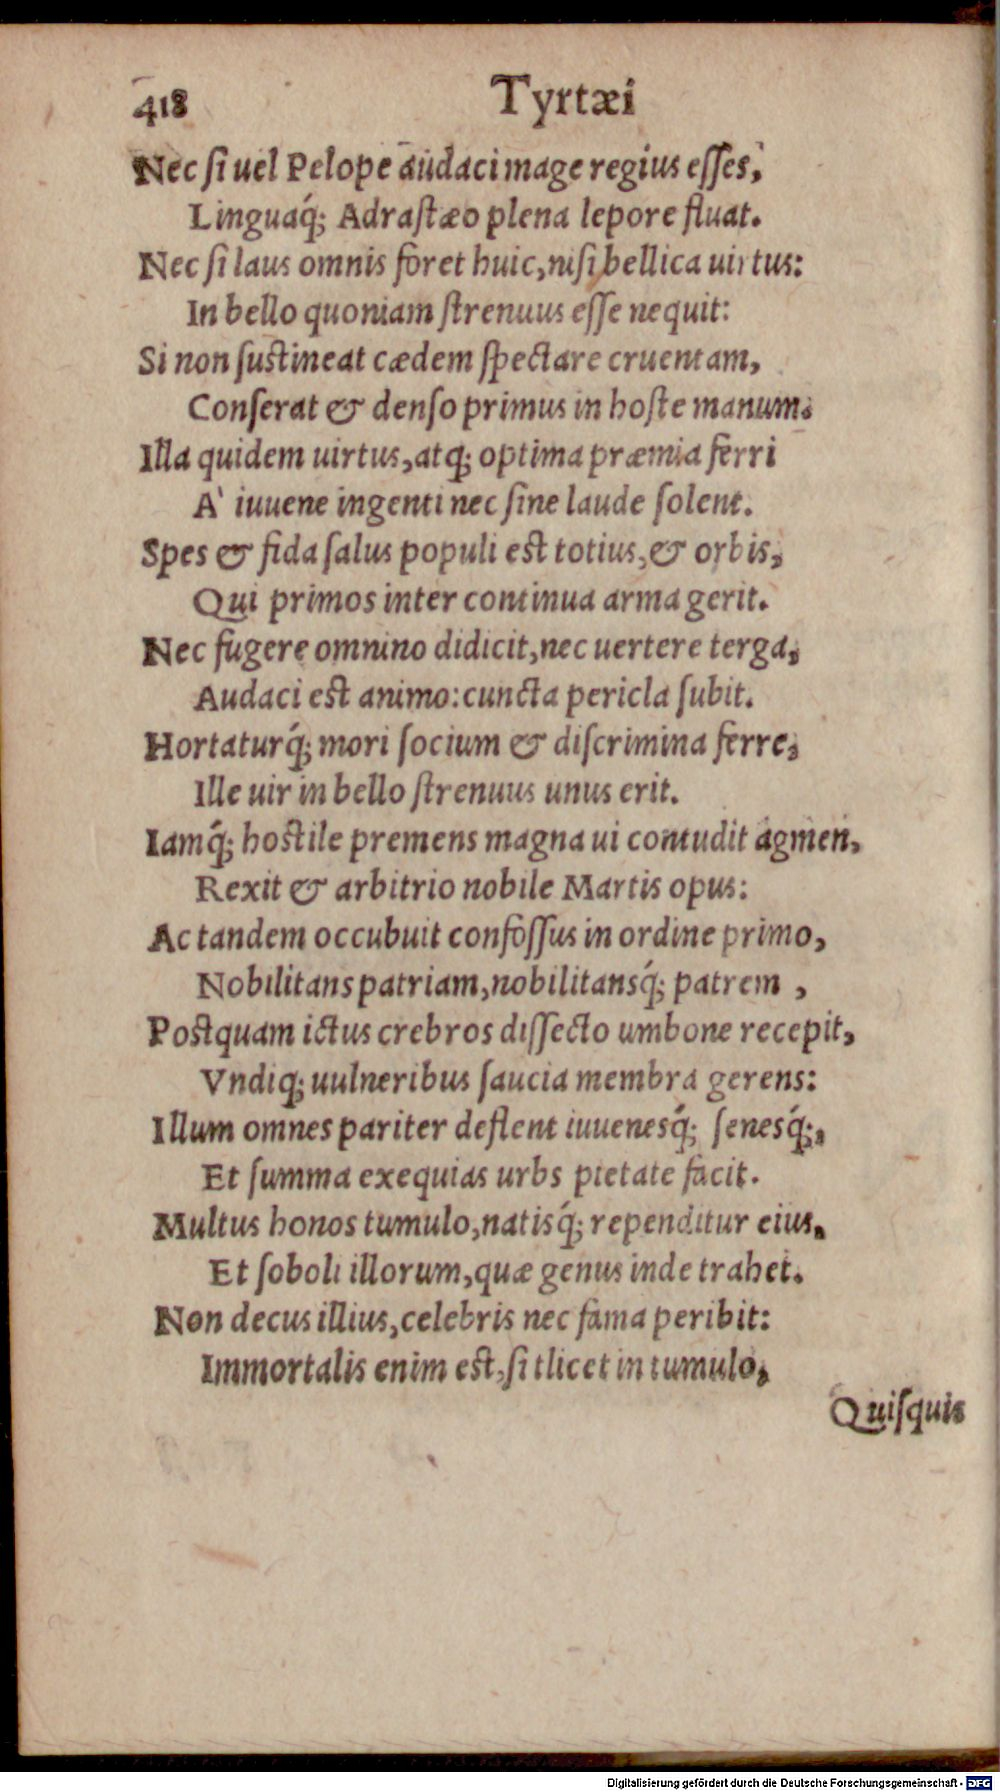 418 Tyrtæi
Nec ſi uel Pelope audaci mage regius eſſes,
Linguaq́; Adraſtæo plena lepore fluat.
Nec ſi laus omnis foret huic, niſi bellica uirtus:
In bello quoniam ſtrenuus eſſe nequit:
Si non ſuſtineat cædem ſpectare cruentam,
Conſerat & denſo primus in hoſte manum.
Illa quidem uirtus, atq; optima præmia ferri
A' iuuene ingenti nec ſine laude ſolent.
Spes & fida ſalus populi eſt totius, & orbis,
Qui primos inter continua arma gerit.
Nec fugere omnino didicit, nec uertere terga,
Audaci eſt animo: cuncta pericla ſubit.
Hortaturq́; mori ſocium & diſcrimina ferre,
Ille uir in bello ſtrenuus unus erit.
Iamq́; hoſtile premens magna ui contudit agmen,
Rexit & arbitrio nobile Martis opus:
Ac tandem occubuit confoſſus in ordine primo,
Nobilitans patriam, nobilitansq́; patrem ,
Poſtquam ictus crebros diſſecto umbone recepit,
Vndiq; uulneribus ſaucia membra gerens:
Illum omnes pariter deflent iuuenesq́; ſenesq́;,
Et ſumma exequias urbs pietate facit.
Multus honos tumulo, natisq́; rependitur eius,
Et ſoboli illorum, quæ genus inde trahet.
Non decus illius, celebris nec fama peribit:
Immortalis enim eſt, ſit licet in tumulo,
Quiſquis
Digitalisierung gefördert durch die Deutsche Forschungsgemeinschaft - DFG